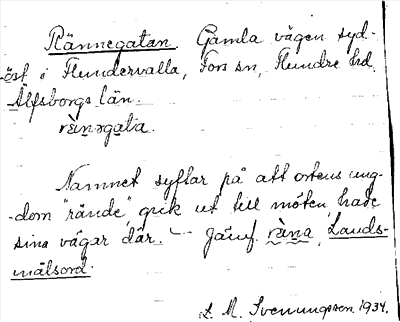 Rännegatan. Gamla vägen syd-
-öst i Flundervalla, Fors sn, Flundre hd,
Älfsborgs län.
rèŋəgata.
Namnet syftar på att ortens ung-
-dom "rände", gick ut till möten, hade
sina vägar där. — Jämf. ràna, Lands-
målsord.
L. M. Svenungsson 1934.